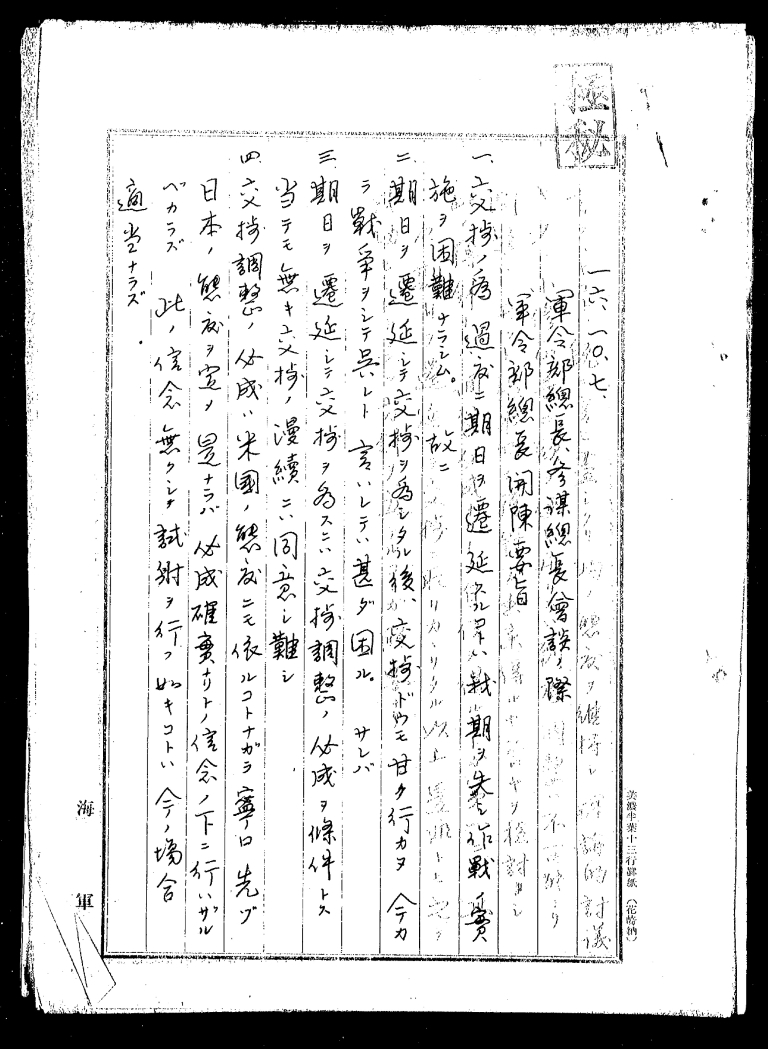 極秘
一六、一〇、七、
軍令部總長、參謀總長會談ノ際
軍令部總長開陳要旨
一、交渉ノ為過度ニ期日ヲ遷延スルハ戦期ヲ失シ作戰實
施ヲ困難ナラシム。故ニ
二、期日ヲ遷延シテ交渉ヲ為シタル後、交渉ドウモ甘ク行カヌ今カ
ラ戰爭ヲシテ呉レト言ハレテハ甚ダ困ル。サレバ
三、期日ヲ遷延シテ交渉ヲ為スニハ交渉調整ノ必成ヲ條件トス
当テモ無キ交渉ノ漫續ニハ同意シ難シ
四、交渉調整ノ必成ハ米國ノ態度ニモ依ルコトナガラ寧ロ先ヅ
日本ノ態度ヲ定メ是ナラバ必成確實ナリトノ信念ノ下ニ行ハザル
ベカラズ 此ノ信念無クシテ試射ヲ行フ如キコトハ今ノ場合
適当ナラズ.
美濃半葉十三行罫紙
海軍